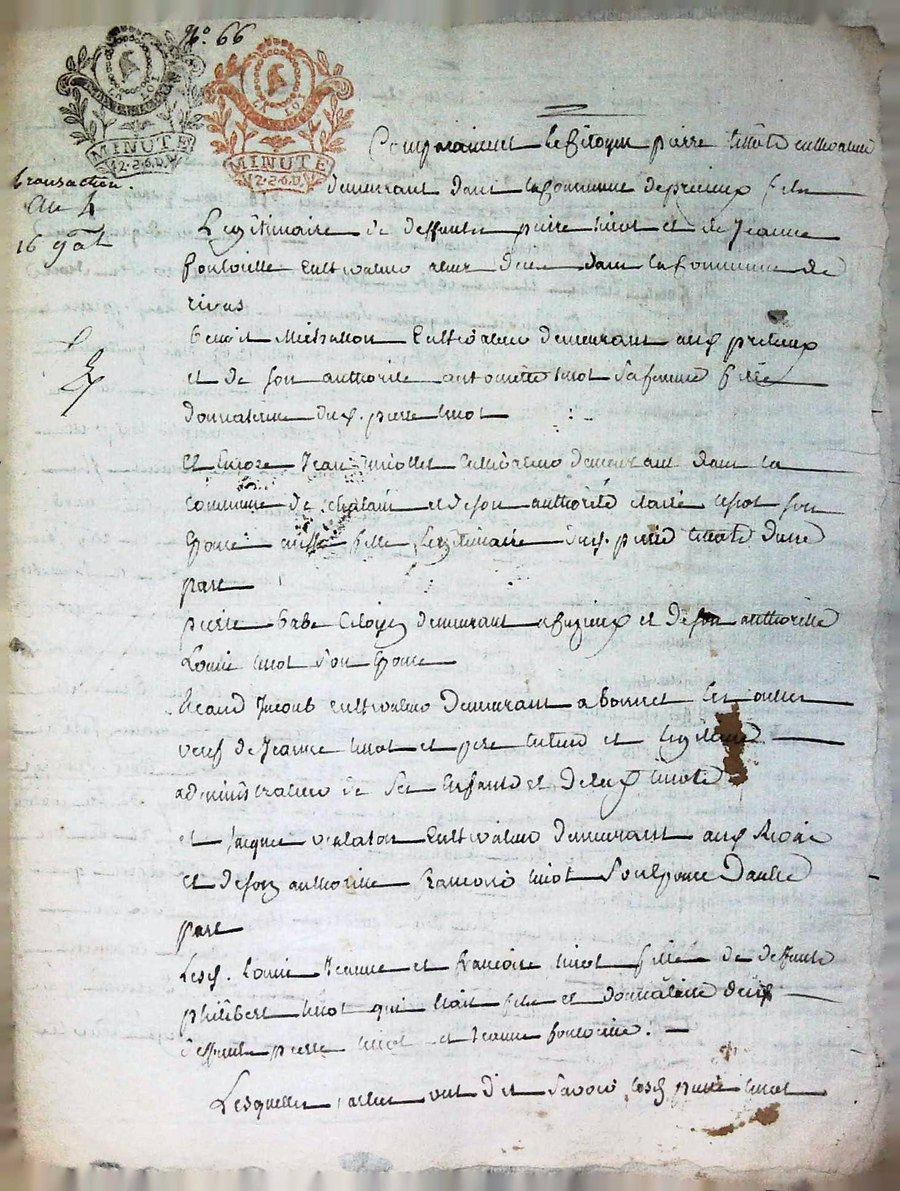 N.° 66
LA LOI
MINUTE
12.S.6.D.
LA LOI
MINUTE
12.S.6.D.
transaction
An 4
16 g.al
Comparaiment le Citoyen pierre tissot cultivateur
demeurant dans la Commune de précieux fils
Legitimaire de deffunts pierre tissot et de Jeanne
cultivateur dans la Commune de
rivas
benoit Michallon Cultivateur demeurant aud precieux
et de son authorité antoinette tissot sa femme fille
donnataire dud. pierre tissot
Et Encore Jean cultivateur demeurant dans la
Commune de chalain et de son authorité tissot son
Epouse aussi fille Legitimaire dud. pierre d'une
part
pierre babe Citoyen demeurant a et de son authorité
Louise tissot son Epouse
Jacoub cultivateur demeurant a bonnet les oulles
veuf de Jeanne tissot et pere tuteur et legitime
administrateur de ses Enfants et de lad
et Jacques cultivateur demeurant aud
et de son authorité francoise tissot son Epouse d'autre
part
Lesd. Louise Jeanne et francoise tissot filles de deffunt
philibert tissot qui était fils et donnataire desd
deffunts pierre tissot et Jeanne
Lesquelles parties ont dit savoir led pierre tissot